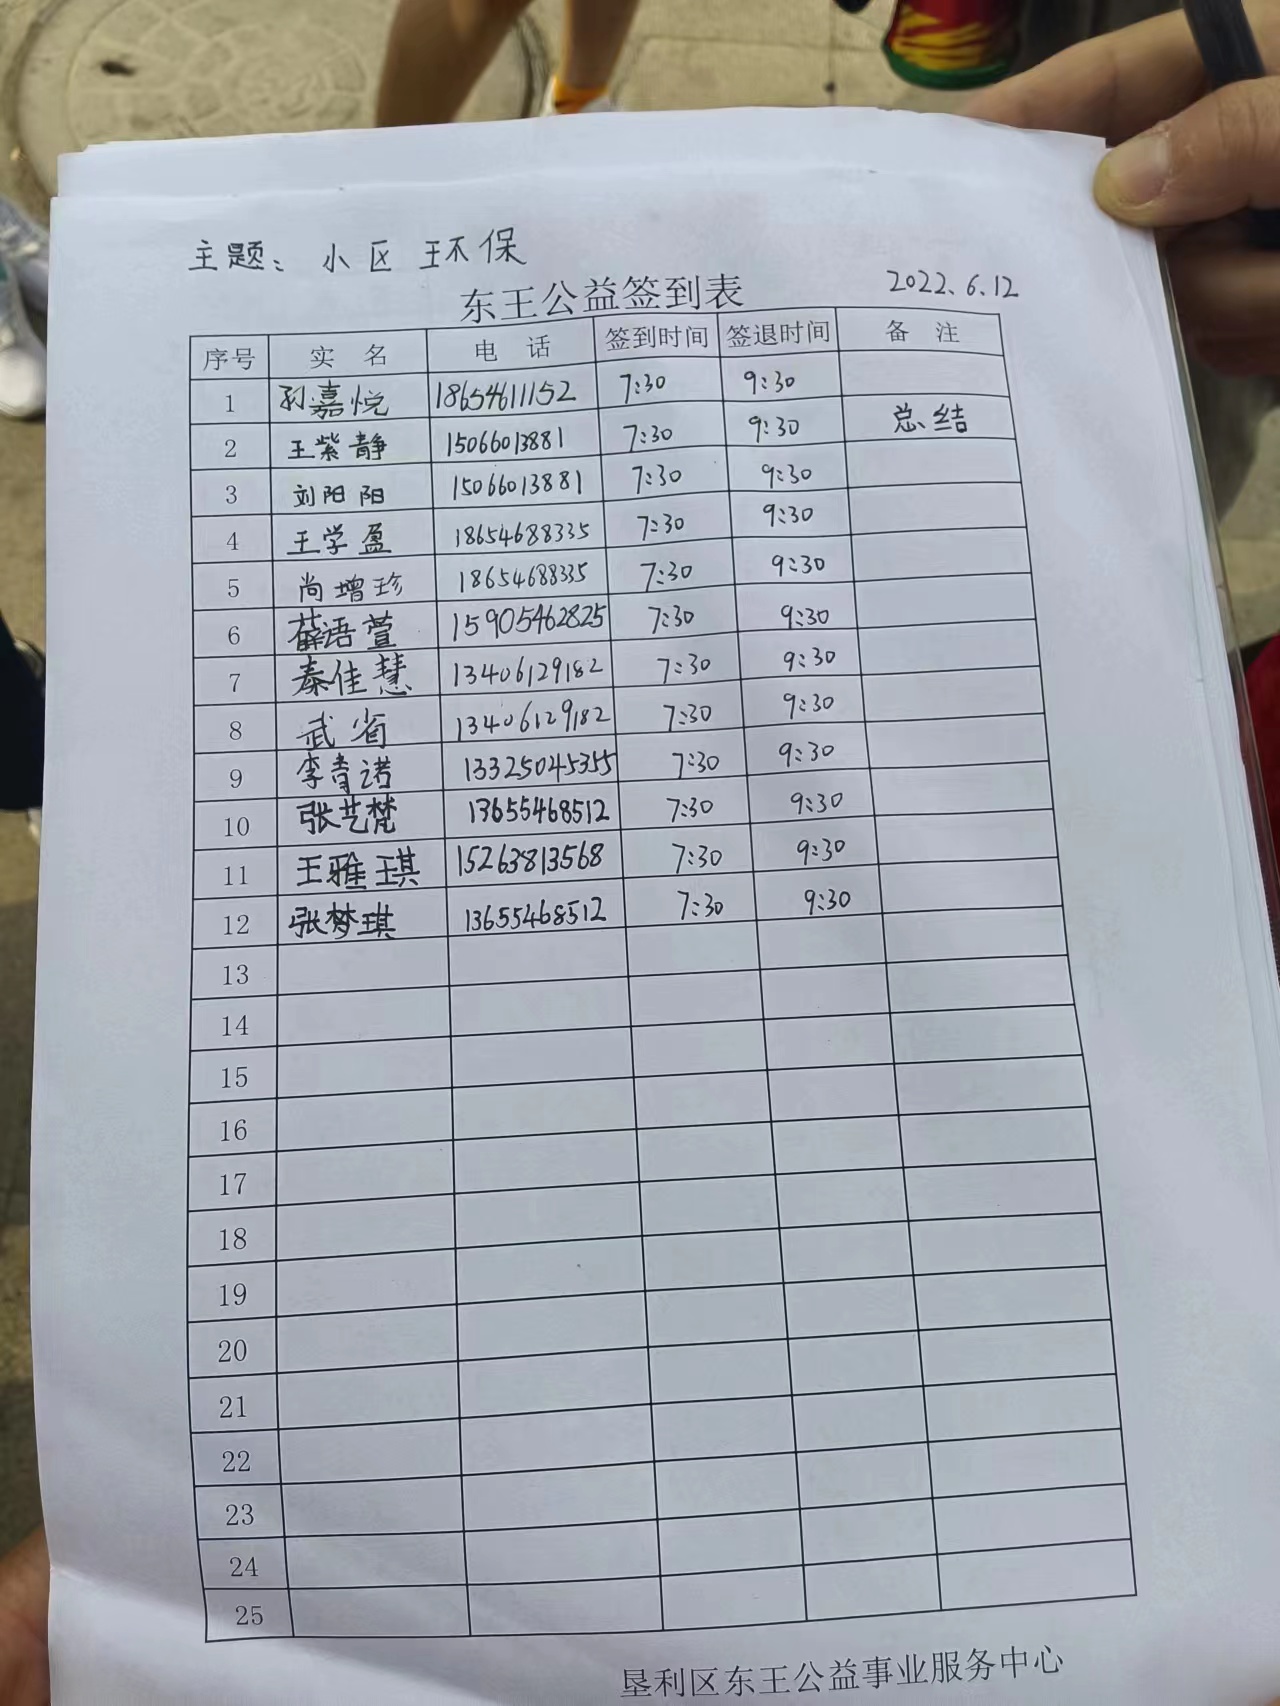 主题：小区环保
东王公益签到表 2022.6.12
序号 实 名 电 话 签到时间 签退时间 备 注
1 孙嘉悦 18654611152 7:30 9:30
2 王紫静 15066013881 7:30 9:30 总结
3 刘阳阳 15066013881 7:30 9:30
4 王学盈 18654688335 7:30 9:30
5 尚增珍 18654688335 7:30 9:30
6 薛语萱 15905462825 7:30 9:30
7 秦佳慧 13406129182 7:30 9:30
8 武省 13406129182 7:30 9:30
9 李青诺 13325045355 7:30 9:30
10 张艺梵 13655468512 7:30 9:30
11 王雅琪 15263813568 7:30 9:30
12 张梦琪 13655468512 7:30 9:30
13
14
15
16
17
18
19
20
21
22
23
24
25
垦利区东王公益事业服务中心